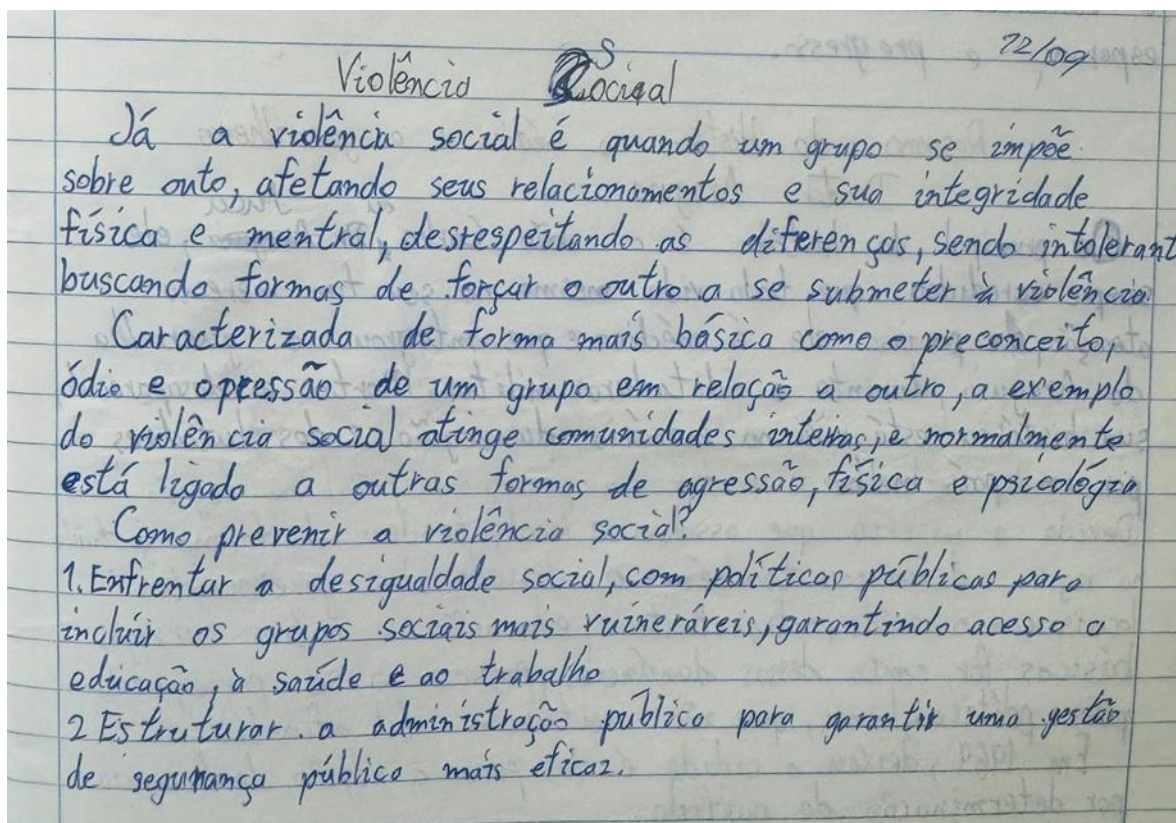 12/09
Violência Social
Já a violência social é quando um grupo se impõe
sobre outo, afetando seus relacionamentos e sua integridade
física e mentral, desrespeitando as diferenças, sendo intolerant
buscando formas de forçar o outro a se submeter à violência
Caracterizada de forma mais básica como o preconceito,
ódio e opressão de um grupo em relação a outro, a exemplo
do violência social atinge comunidades inteiras, e normalmente
está ligado a outras formas de agressão, física e psicológia
Como prevenir a violência social?
1. Enfrentar a desigualdade social, com políticas públicas para
incluir os grupos sociais mais vulneráveis, garantindo acesso a
educação, à saúde e ao trabalho
2 Estruturar a administração público para garantir uma gestão
de segurança público mais eficaz.